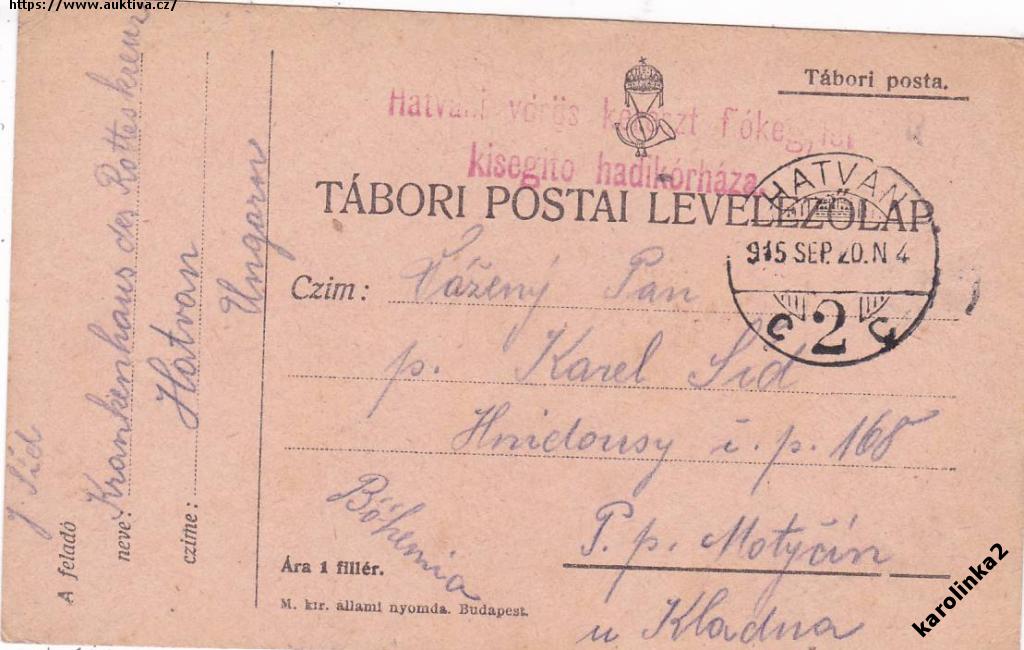 https://www.auktiva.cz/
Tábori posta.
Hatvani vörös kereszt fiókegylet
kisegitö hadikórháza.
TÁBORI POSTAI LEVELEZŐLAP
HATVAN
915 SEP. 20. N 4
2
Czim:
Vážený Pan
p. Karel Šíd
Hnidousy č. p. 168
P. p. Motyčín
u Kladna
Böhemia
Ára 1 fillér.
M. kir. állami nyomda. Budapest.
A feladó
J Šíd
neve: Krankenhaus des Rottes kreuz
czime: Hatvan
Ungarn
karolinka2